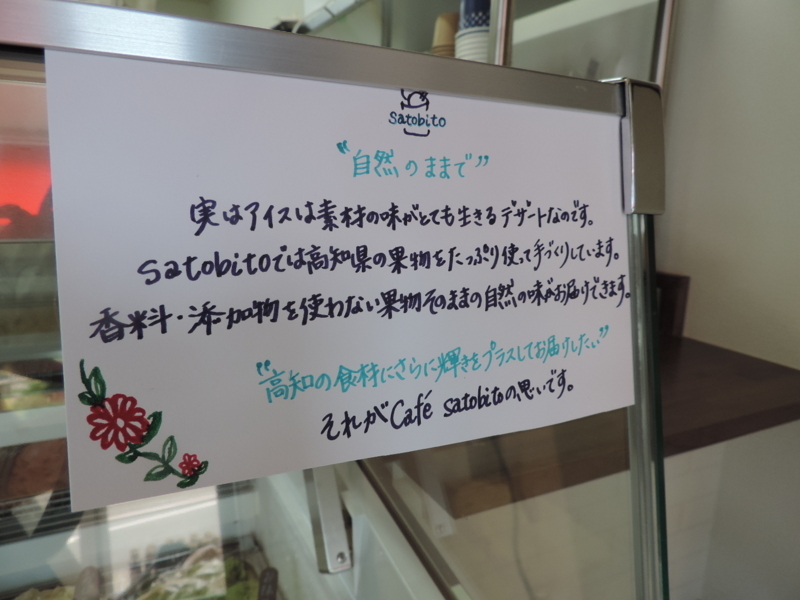 satobito
“自然のままで”
実はアイスは素材の味がとても生きるデザートなのです。
satobitoでは高知県の果物をたっぷり使って手づくりしています。
香料・添加物を使わない果物そのままの自然の味がお届けできます。
“高知の食材にさらに輝きをプラスしてお届けしたい”
それがCafé satobitoの思いです。